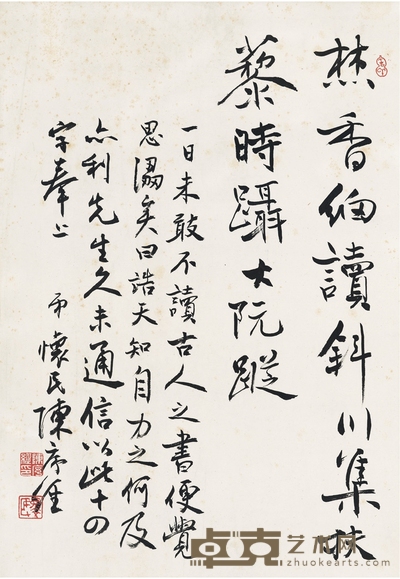 焚香細讀斜川集扶
藜時躡大阮蹤
一日未敢不讀古人之書便覺
思溺矣曰誥天知自力之何及
亦利先生久未通信以此十四
字奉上
懷民陳序
卓克艺术网
www.zhuokearts.com